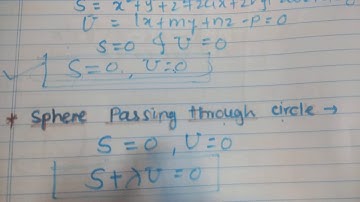 S = x² + y² + z² + 2ux + 2vy
U = lx + my + nz - P = 0
S=0 & U=0
S=0, U=0
* Sphere Passing through circle →
S=0, U=0
S+λU=0